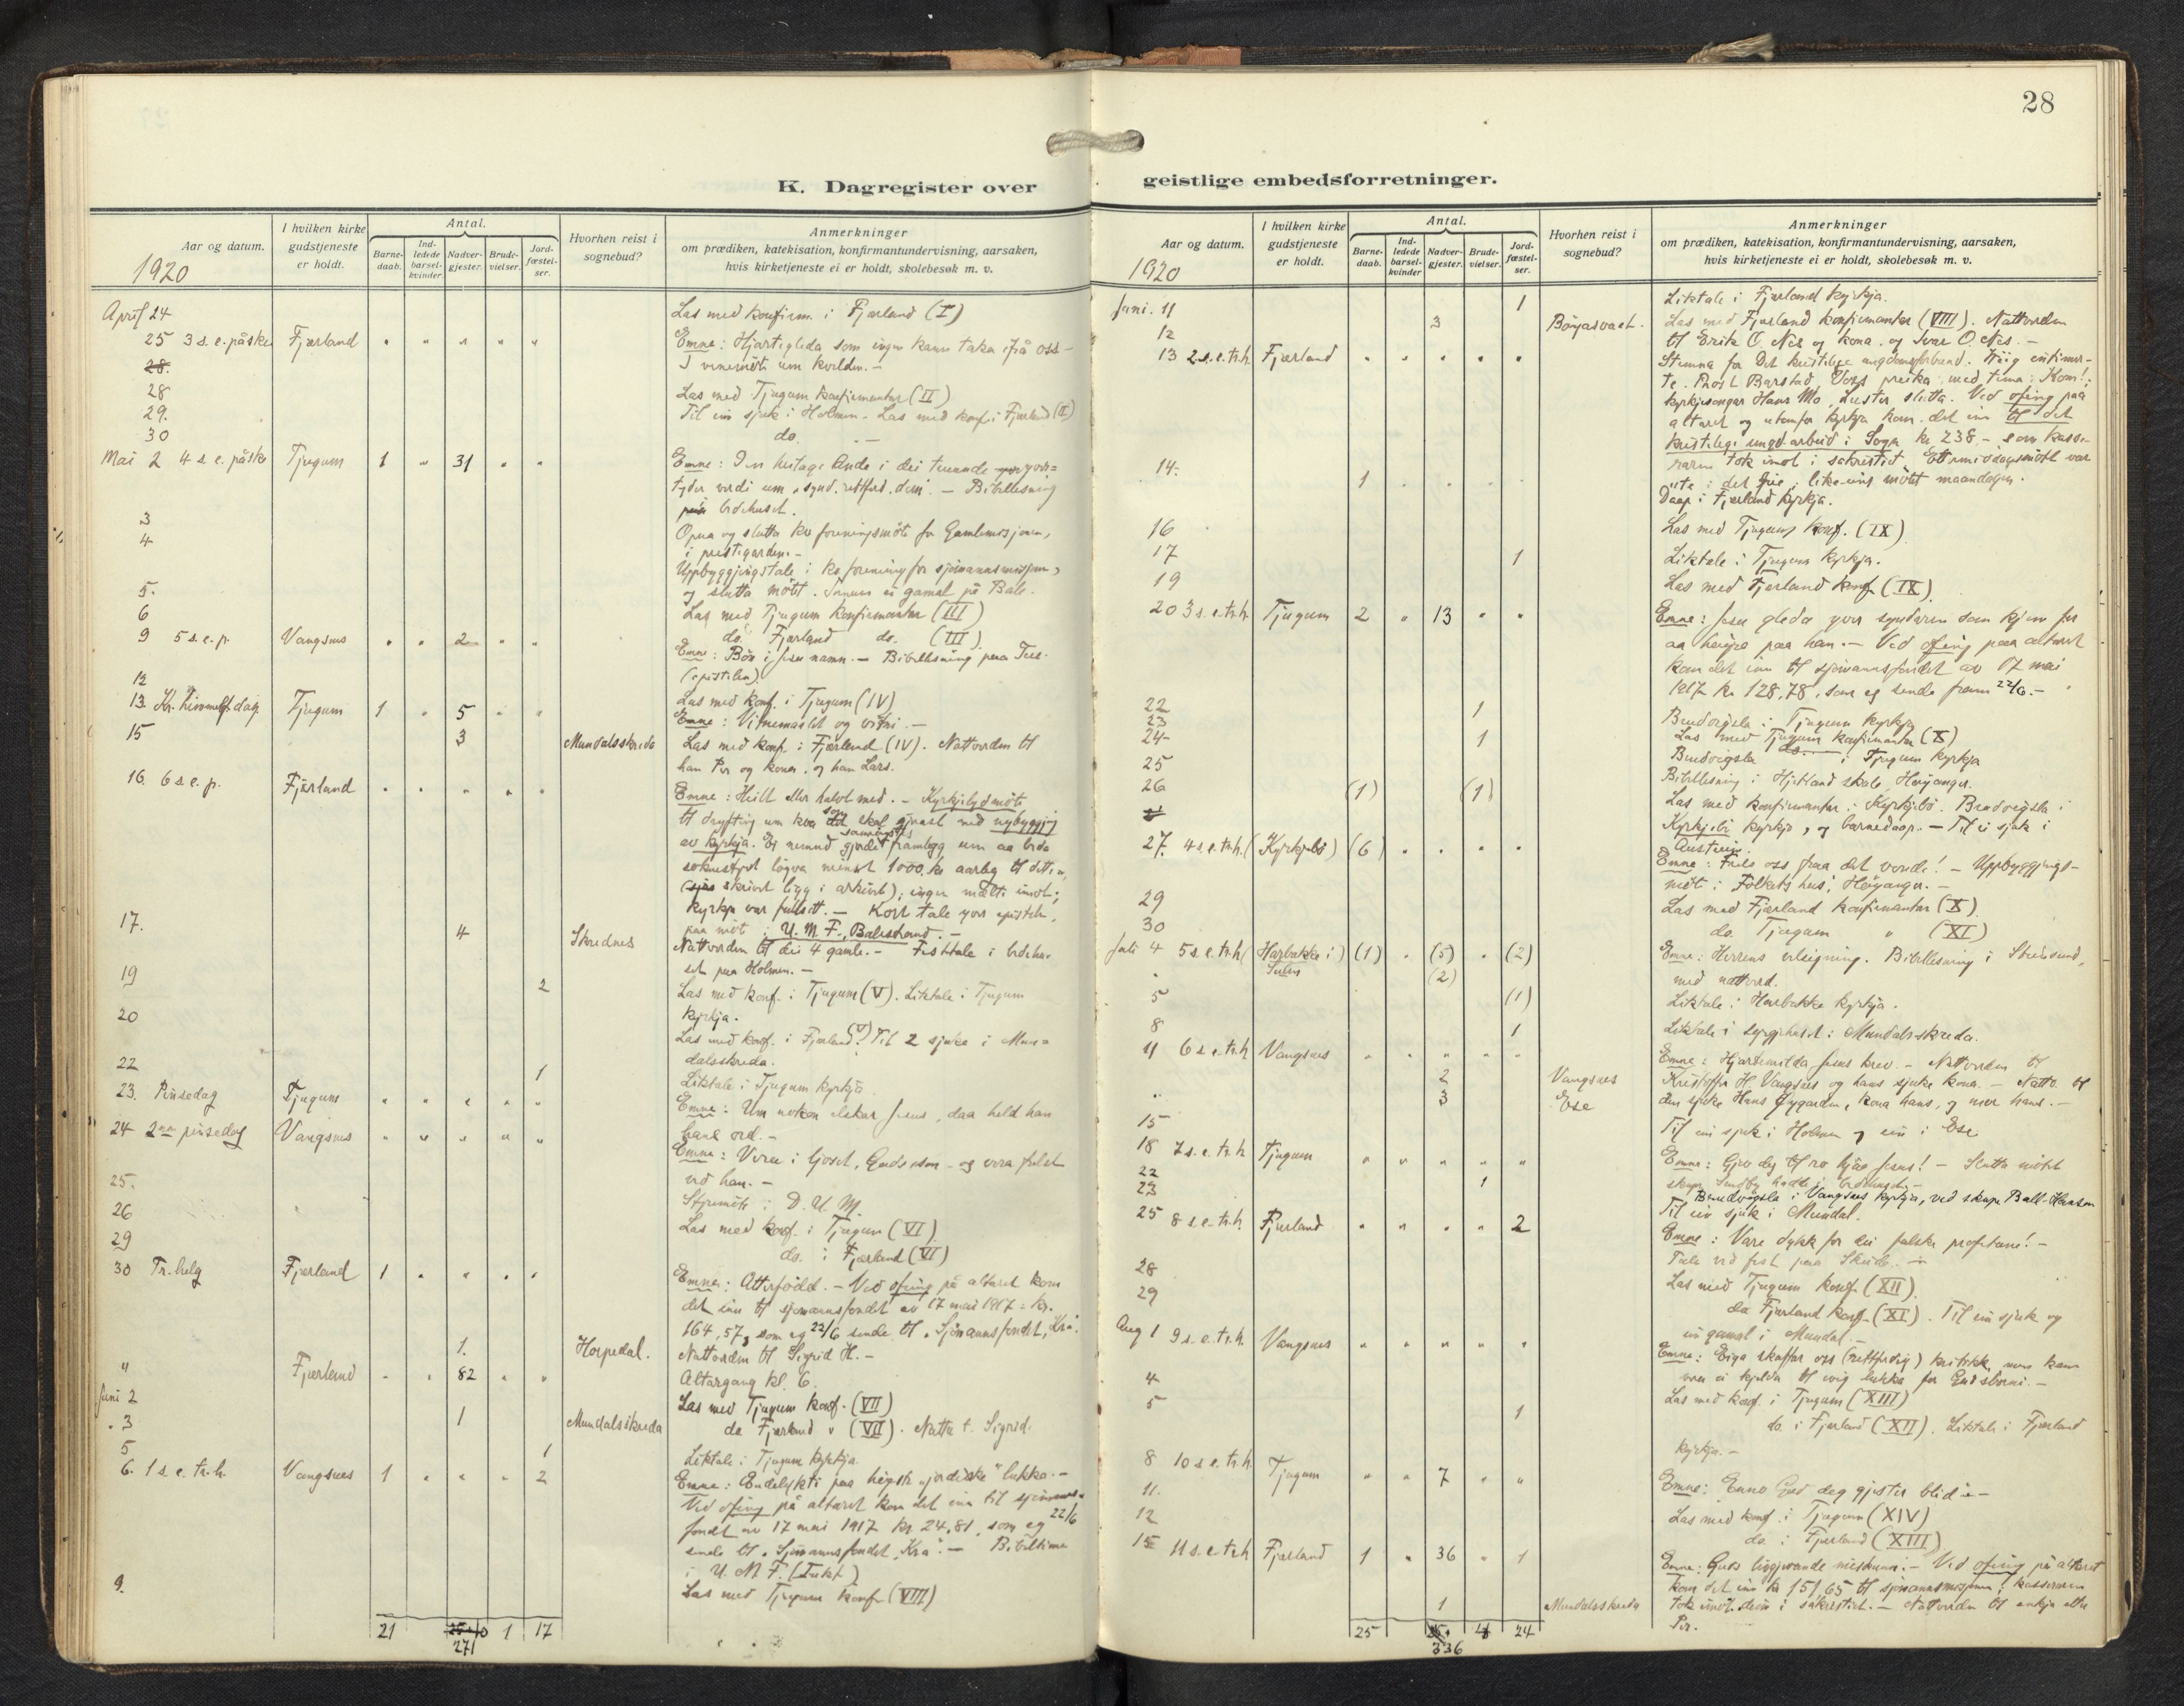 28
K. Dagregister over
geistlige embedsforretninger.
Aar og datum.
I hvilken kirke gudstjeneste er holdt.
Antal.
Barne-daab.
Ind-ledede barsel-kvinder.
Nadver-gjester.
Brude-vielser.
Jord-fæstel-ser.
Hvorhen reist i sognebud?
Anmerkninger
om prædiken, katekisation, konfirmantundervisning, aarsaken,
hvis kirketjeneste ei er holdt, skolebesøk m. v.
1920
April 24 Las med konfirm. i Fjærland (I)
25 3 s. e. påske Fjærland Emne: Hjartegleda som ingen kann taka ifrå oss -
I vinemöte um kvelden. -
28.
28 Las med Tjugum konfirmantar (II)
29. Til ein sjuk i Holmen. Las med konf. i Fjærland (II)
30 do. -
Mai 2 4 s. e. påske Tjugum 1 31 Emne: Den heilage Ande i dei truande
tyder verdi um "synd, rettferd, dom". - Bibellesning
bedehuset.
3 Opna og slutta kv. foreningsmöte for
4 i prestegarden. -
Uppbyggjingstale i kv. forening for sjömannsmisjon,
5. og slutta mötet. ei gamal på Bale.
6 Las med Tjugum konfirmantar (III)
9 5 s. e. p. Vangsnes 2 do. Fjærland do. (III)
Emne: Bön i Jesu namn. - Bibellesning paa
(epistelen).
12 Las med konf. i Tjugum (IV)
13. Kr. himmelf. dag. Tjugum 1 5 Emne: Vitnemaalet og vitni. -
15 3 Mundalsskreda Las med konf. i Fjærland (IV). Nattverden til
han Per og kona, og han Lars.
16. 6 s e. p. Fjærland Emne: Heilt eller halvt med. - Kyrkjelydmöte
til dryfting um kva som skal gjerast med nybyggjing
av kyrkja. Ei nemnd gjorde samröystes framlegg um aa beda
soknestyret löyva minst 1000 kr aarleg til dette,
(skrivet ligg i arkivet); ingen mælte imot;
kyrkja var fullsett. - Kort tale yver epistelen,
paa möt i U. M. F., Balestrand. -
17. 4 Skrednes Nattverden til dei 4 gamle. - Festtale i bedehu-
set paa Holmen. -
19 2 Las med konf. i Tjugum (V). Liktale i Tjugum
kyrkja.
20 Las med konf. i Fjærland (V). Til 2 sjuke i Mun=
dalsskreda.
22 1 Liktale i Tjugum kyrkja
23. Pinsedag Tjugum Emne: Um nokon elskar Jesus, daa held han
hans ord. -
24 2nn pinsedag Vangsnes Emne: Vera i ljoset, Guds son - og vera frelst
ved han. -
25. Styremöte i D. U. M.
26 Las med konf. i Tjugum (VI)
29 do. i Fjærland (VI)
30 Tr. helg Fjærland 1 Emne: Atterfödd. - Ved ofring på altaret kom
det inn til sjömannsfondet av 17 mai 1917: kr.
164,57, som eg 22/6 sende til "Sjömannsfondet, Kra".
1. Horpedal. Nattverden til Sigrid H. -
" Fjærland 82 Altargang kl. 6.
Juni 2 Las med Tjugum konf. (VII)
" 3 1 Mundalsskreda do Fjærland " (VII). Nattv. t. Sigrid.
5 1 Liktale i Tjugum kyrkja
6. 1 s. e. tr. h. Vangsnes 1 2 Emne: Endelykti paa högste "jordiske" lukka. -
Ved ofring på altaret kom det inn til sjömanns-
fondet av 17 mai 1917 kr 24,81, som eg 22/6
sende til "Sjömannsfondet, Kra". - Bibeltime
i U. M. F. (Tukt)
9. Las med Tjugum konf. (VIII)
21 271 1 17
Aar og datum.
I hvilken kirke gudstjeneste er holdt.
Antal.
Barne-daab.
Ind-ledede barsel-kvinder
Nadver-gjester.
Brude-vielser.
Jord-fæstel-ser.
Hvorhen reist i sognebud?
Anmerkninger
om prædiken, katekisation, konfirmantundervisning, aarsaken,
hvis kirketjeneste ei er holdt, skolebesøk m. v.
1920
Juni. 11 1 Liktale i Fjærland kyrkja.
12 3 Bøyasvaet. Las med Fjærland konfirmantar (VIII). Nattverden
til Erik O. Nes og kona, og Ivar O. Nes. -
13 2 s. e. tr. h. Fjærland Stemna for Det kristilege ungdomsforbund.
Prost Barstad, Voss preika med tima: Kom!;
kyrkjesongar Hans Mo, Luster slutta. Ved ofring paa
altaret og utanfor kyrkja kom det inn til det
kristelege ungd. arbeid i Sogn kr 238 - som kasse-
raren tok imot i sakristiet. Ettermiddagsmötet var
ute i det frie; like-eins mötet maandagen.
14. 1 Daap i Fjærland kyrkja.
16 Las med Tjugum konf. (IX)
17 1 Liktale i Tjugum kyrkja.
19 Las med Fjærland konf. (IX).
20 3 s. e. tr. h. Tjugum 2 13 Emne: Jesu gleda yver syndaren som kjem for
aa höyra paa han. - Ved ofring paa altaret
kom det inn til sjömannsfondet av 17 mai
1917 kr 128,78, som eg sende fram 22/6. -
22 1 Brudvigsla i Tjugum kyrkja
23 Las med Tjugum konfirmantar (X)
24 1 Brudvigsla i Tjugum kyrkja
25 Bibellesning i Hjetland skule, Höyanger.
26 (1) (1) Las med konfirmantar i Kyrkjebö. Brudvigsla i
Kyrkjebö kyrkja, og barnedaap. - Til ei sjuk i
Austrein.
27. 4 s. e. tr. h. (Kyrkjebö) (6) Emne: Frels oss fraa det vonde! - Uppbyggjings-
möte i Folkets hus, Höyanger. -
29 Las med Fjærland konfirmantar (X)
30 do. Tjugum " (XI)
Juli 4 5 s. e. tr. h. (Harbakke i Sulen) (1) (5) (2) Emne: Herrens velsigning. Bibellesning i
(2) med nattverd.
5 (1) Liktale i Harbakke kyrkja.
8 1 Liktale i syrgjehuset i Mundalsskreda.
11 6 s. e. tr. h Vangsnes Emne: Hjartemilda Jesus krev. - Nattverden til
2 Vangsnes Kristoffer H. Vangsnes og hans sjuke kona. - Nattv. til
3 Ese den sjuke Hans Øygarden, kona hans, og mor hans. -
15 Til ein sjuk i Holmen og ein i Ese
18 7 s. e. tr. h Tjugum Emne: Gjev deg til ro hjaa Jesus! - Slutta mötet
22
23 1 Brudvigsla i Vangsnes kyrkja, ved skapr. Ball-Hansen
Til ein sjuk i Mundal.
25 8 s. e. tr. h Fjærland 2 Emne: Vare dykk for dei falske profetane! -
Tale ved fest paa
28 Las med Tjugum konf. (XII).
29 do Fjærland konf. (XI). Til ein sjuk og
ein gamal i Mundal. -
Aug 1 9 s. e. tr. h. Vangsnes Emne: Eiga skaffar oss (rettferdig) kritikk, men kann
vera ei kjelda til evig lukka for Guds born. -
4 Las med konf. i Tjugum (XIII)
5 1 do. i Fjærland (XII). Liktale i Fjærland
kyrkja. -
8 10 s e. tr. h. Tjugum 7 Emne: Enno Gud deg gjester blid -
11. Las med konf. i Tjugum (XIV)
12 do. i Fjærland (XIII)
15 11 s. e. tr. h Fjærland 1 36 1 Emne: Guds miskunn. - Ved ofring på altaret
kom det inn kr 151,65 til sjömannsmisjonen; kasseraren
1 Mundalsskreda tok imot deim i sakristiet. - Nattverden til enkja etter
Per.
25 336 4 24